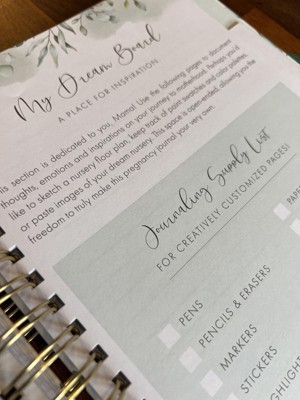 My Dream Board
A PLACE FOR INSPIRATION
This section is dedicated to you, Mama! Use the following pages to document
thoughts, emotions and inspirations on your journey to motherhood. Perhaps, you'd
like to sketch a nursery floor plan, keep track of paint swatches and color palettes,
or paste images of your dream nursery. This space is open-ended, allowing you the
freedom to truly make this pregnancy journal your very own.
Journaling Supply List
FOR CREATIVELY CUSTOMIZED PAGES!
PENS
PENCILS & ERASERS
MARKERS
STICKERS